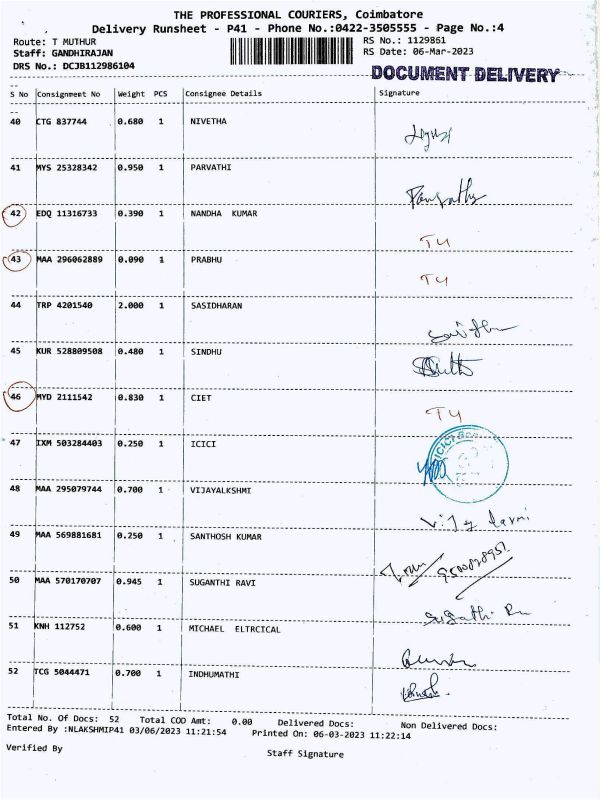 THE PROFESSIONAL COURIERS, Coimbatore
Delivery Runsheet - P41 - Phone No.:0422-3505555 - Page No.:4
Route: T MUTHUR RS No.: 1129861
Staff: GANDHIRAJAN RS Date: 06-Mar-2023
DRS No.: DCJB112986104
DOCUMENT DELIVERY
S No Consignment No Weight PCS Consignee Details Signature
40 CTG 837744 0.680 1 NIVETHA
41 MYS 25328342 0.950 1 PARVATHI
42 EDQ 11316733 0.390 1 NANDHA KUMAR
T4
43 MAA 296062889 0.090 1 PRABHU
T4
44 TRP 4201540 2.000 1 SASIDHARAN
45 KUR 528809508 0.480 1 SINDHU
46 MYD 2111542 0.830 1 CIET
T4
47 IXM 503284403 0.250 1 ICICI
48 MAA 295079744 0.700 1 VIJAYALKSHMI
49 MAA 569881681 0.250 1 SANTHOSH KUMAR
50 MAA 570170707 0.945 1 SUGANTHI RAVI
51 KNH 112752 0.600 1 MICHAEL ELTRCICAL
52 TCG 5044471 0.700 1 INDHUMATHI
Total No. Of Docs: 52 Total COD Amt: 0.00 Delivered Docs: Non Delivered Docs:
Entered By :NLAKSHMIP41 03/06/2023 11:21:54 Printed On: 06-03-2023 11:22:14
Verified By Staff Signature